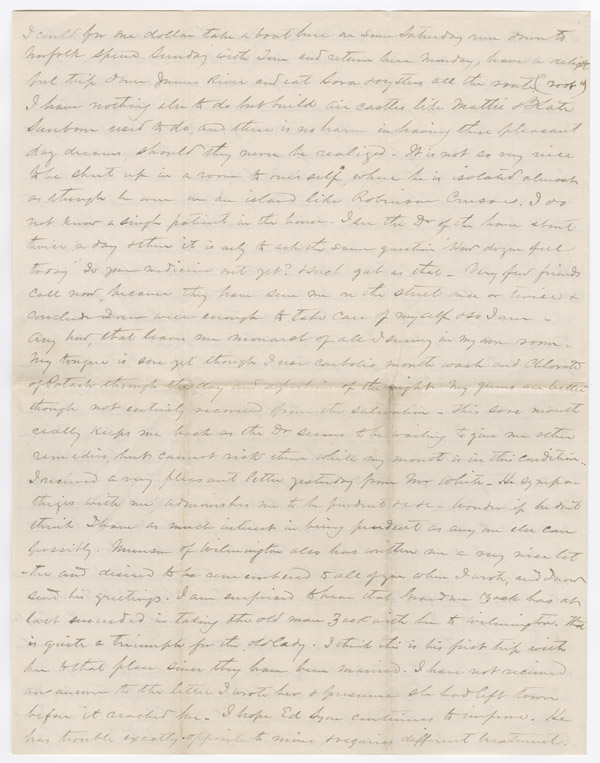 I could for one dollar take a boat here on some Saturday run down to
Norfolk spend Sunday with Tom and return here Monday, have a delight
ful trip down James River and eat Sora & oysters all the route ("root")
I have nothing else to do but build air castles like Mattie & Kate
Sanborn used to do, and there is no harm in having these pleasant
day dreams, should they never be realized - It is not so very nice
to be shut up in a room to one's self, where he is isolated almost
as though he were on an island like Robinson Crusoe. I do
not know a single patient in the house - I see the Dr of the house about
twice a day & then it is only to ask the same question "How do you feel
today" Is your medicine out yet? & such gab as that - Very few friends
call now, because they have seen me on the street once or twice &
conclude I am well enough to take care of myself & so I am -
Any how, that leaves me monarch of all I survey in my own room -
My tongue is sore yet though I use carbolic mouth wash and Chlorate
of Potash through the day and a portion of the night. My gums are better
though not entirely recovered from the salivation - This sore mouth
really keeps me back as the Dr seems to be waiting to give me other
remedies, but cannot risk them while my mouth is in this condition.
I received a very pleasant letter yesterday from Mr White - He sympa
thizes with me, admonishes me to be prudent &c &c - Wonder if he don't
think I have as much interest in being prudent as any one else can
possibly. Munson of Wilmington also has written me a very nice let
-ter and desired to be remembered to all of you when I wrote, and I now
send his greetings. I am surprised to hear that Grandma Zack has at
last succeeded in taking the old man Zack with her to Wilmington. That
is quite a triumph for the old lady. I think this is his first trip with
her to that place since they have been married. I have not received
an answer to the letter I wrote her & presume she had left town
before it reached her - I hope Ed Lyon continues to improve. He
has trouble exactly opposite to mine & requires different treatment.